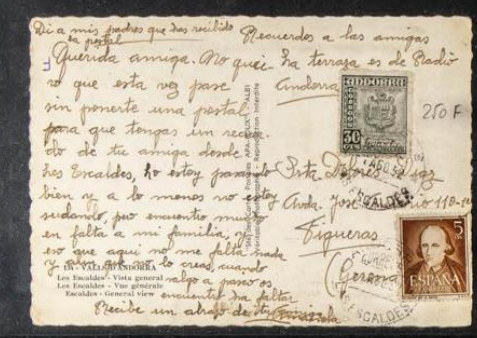 Di a mis padres que has recibido
la postal
Recuerdos a las amigas
Querida amiga. No quie-
ro que esta vez pase
sin ponerte una postal
para que tengas un recu
do de tu amiga desde
Les Escaldes, lo estoy
bien y a lo menos no estoy
sudando, pero encuentro mucho
en falta a mi familia, y
eso que aqui no me falta nada
y no lo creas, cuando
salgo a
encuentro ha faltar
Recibe un abrazo de tu
la terraza es de Radio
Andorra
ANDORRA
30
CTS
250 F
Srta Dolores Diaz
Avda. José 118
Figueras
(Gerona)
5
ESPAÑA
ESCALDES
ESCALDES
APA-POUX - ALBI
Reproduction Interdite
VALLS D'ANDORRA
Les Escaldes - Vista general
Les Escaldes - Vue générale
Escaldes - General view